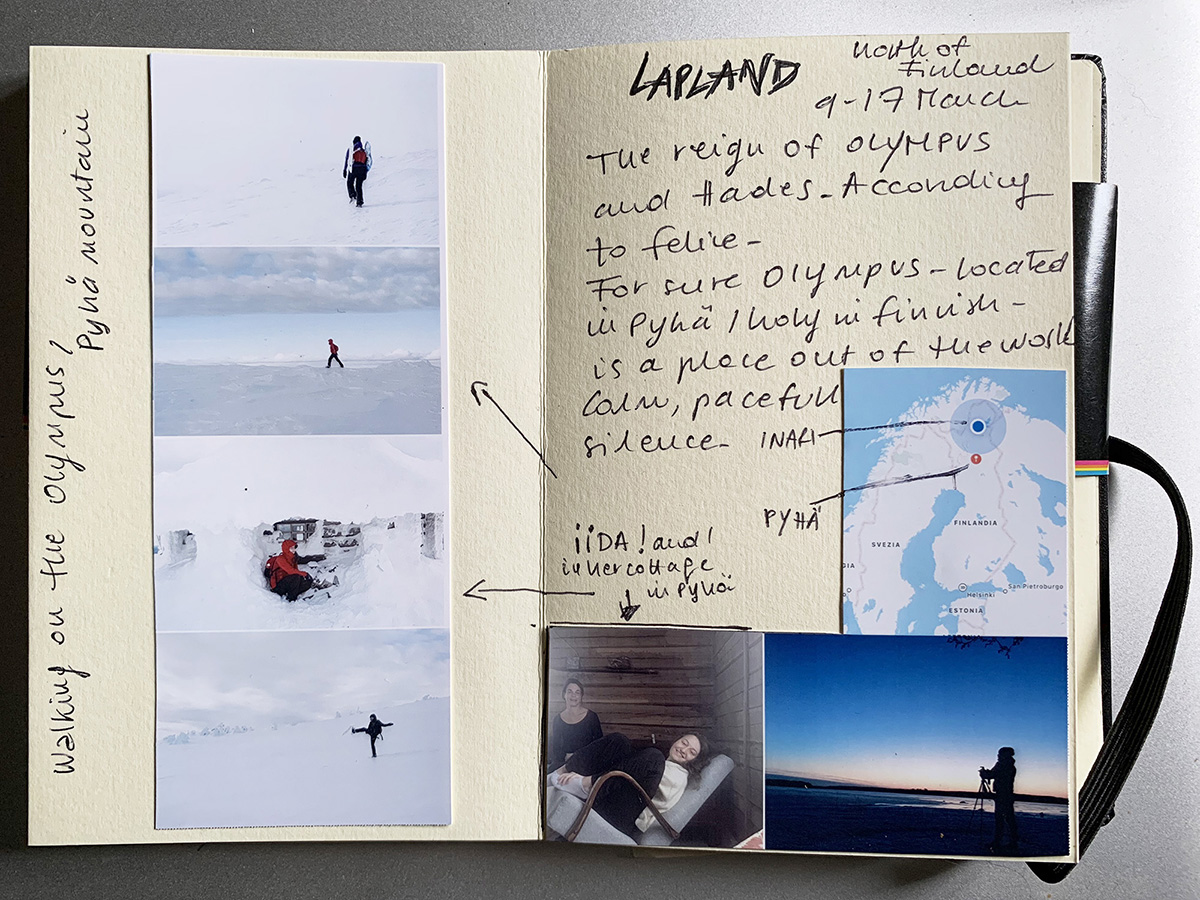 Walking on the Olympus /
Pyhä mountain
LAPLAND
North of
Finland
9-17 March
The reign of OLYMPUS
and Hades - According
to felice -
For sure OLYMPUS - located
in Pyhä / holy in finnish -
is a place out of the world
Calm, pacefull
silence -
INARI
PYHÄ
iiDA! and I
in her cottage
in Pyhä
FINLANDIA
SVEZIA
GIA
Helsinki
San Pietroburgo
ESTONIA